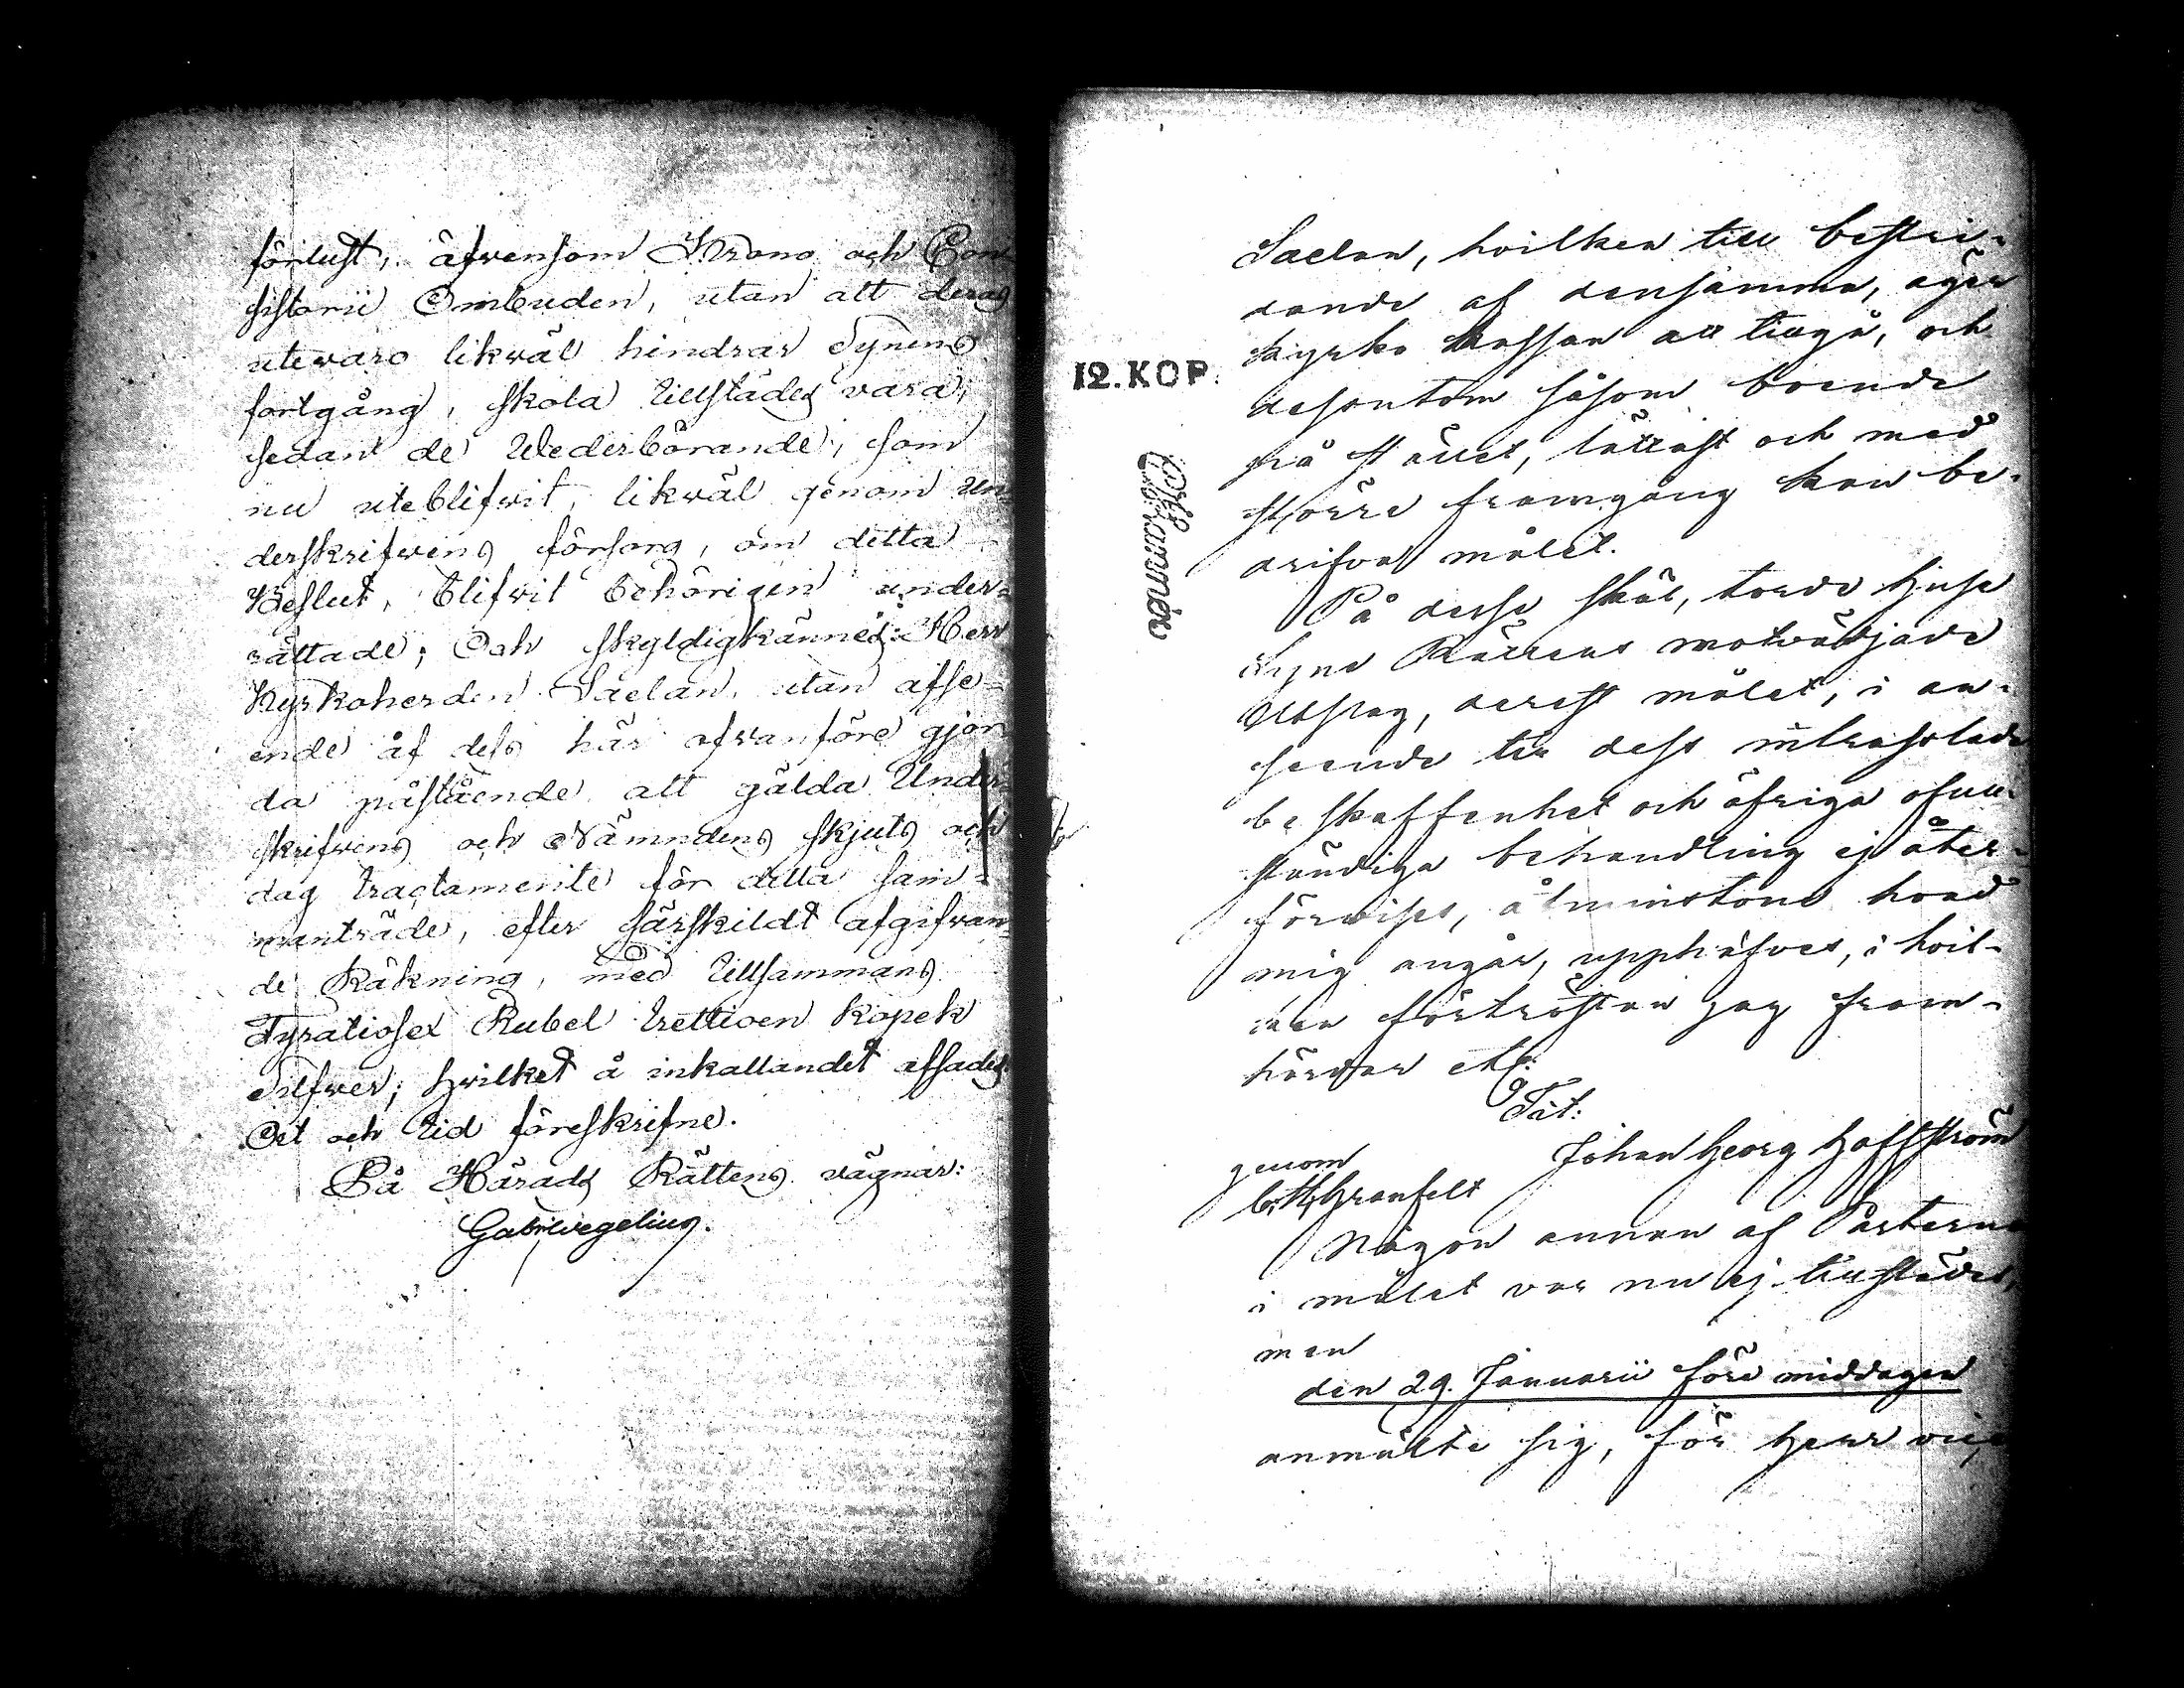 förlust, äfwensom Krono och Con-
sistorii Ombuden, utan att deras
utewaro likwäl hindrar Synens
fortgång, skola tillstädes vara,
sedan de Wederbörande, som
nu uteblifwit, likwäl genom Un-
derskrifwens försorg, om detta
Beslut, blifwit behörigen under-
rättade; Och skyldigkännes Herr
Kyrkoherden Saelan, utan afse-
ende af dess här ofvanföre gjor-
da påstående att gälda Under-
skrifwens och Nämndens skjuts och
dag tractamente för detta sam-
manträde, efter särskildt afgifvan-
de Räkning, med tillsammans
Fyratiosex Rubel trettioen Kopek
Silfwer; hwilket å inkallandet afsades.
Ort och tid föreskrifne.
På Härads Rättens vägnar:
Gabr. Wegelius.
Saelan, hvilken till bestri-
dande af densamma, äger
Kyrko Kassan att tillgå, och
12.KOP.
dessutom såsom boende
på stället, lättast och med
större framgång kan be-
drifva målet.
På desse skäl, torde Huse
Syne Rättens motvädjade
Utslag, derest målet, i an-
seende till dess
beskaffenhet och öfriga ofull-
ständiga behandling ej åter-
förvises, åtminstone hvad
mig angår, upphäfves, i hvil-
ken förtröstan jag fram-
härdar etc:
Tit:
Johan Georg Hoffström
genom
C. H. Granfelt
Någon annan af Parterna
i målet var nu ej tillstädes,
men
den 29. Januarii före middagen
anmälte sig, för Herr vice